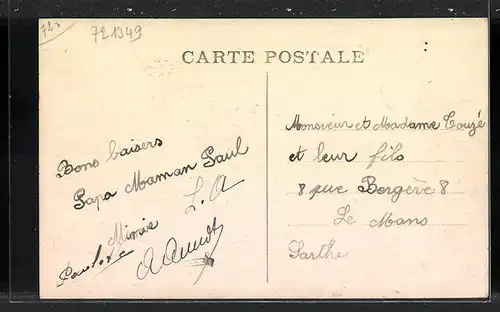 72
721349
CARTE POSTALE
Bons baisers
Papa Maman Paul
L. A
Mimie
Monsieur et Madame Touzé
et leur fils
8 rue Bergère 8
Le Mans
Sarthe